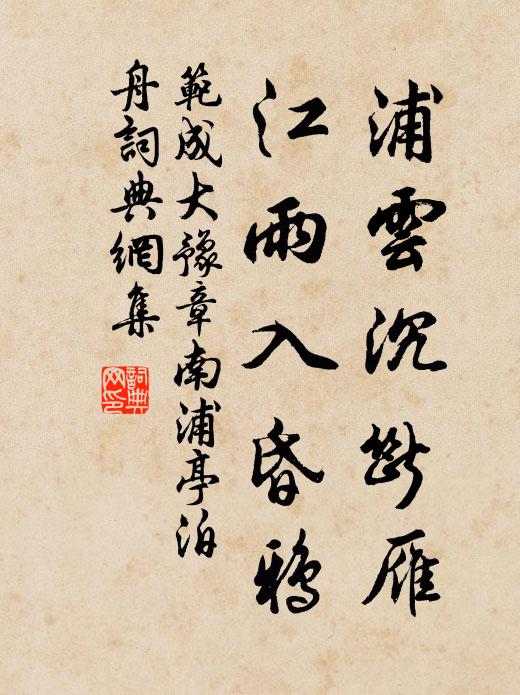 浦雲沉斷雁
江雨入昏鴉
範成大豫章南浦亭泊
舟詞典網集
詞典
网印